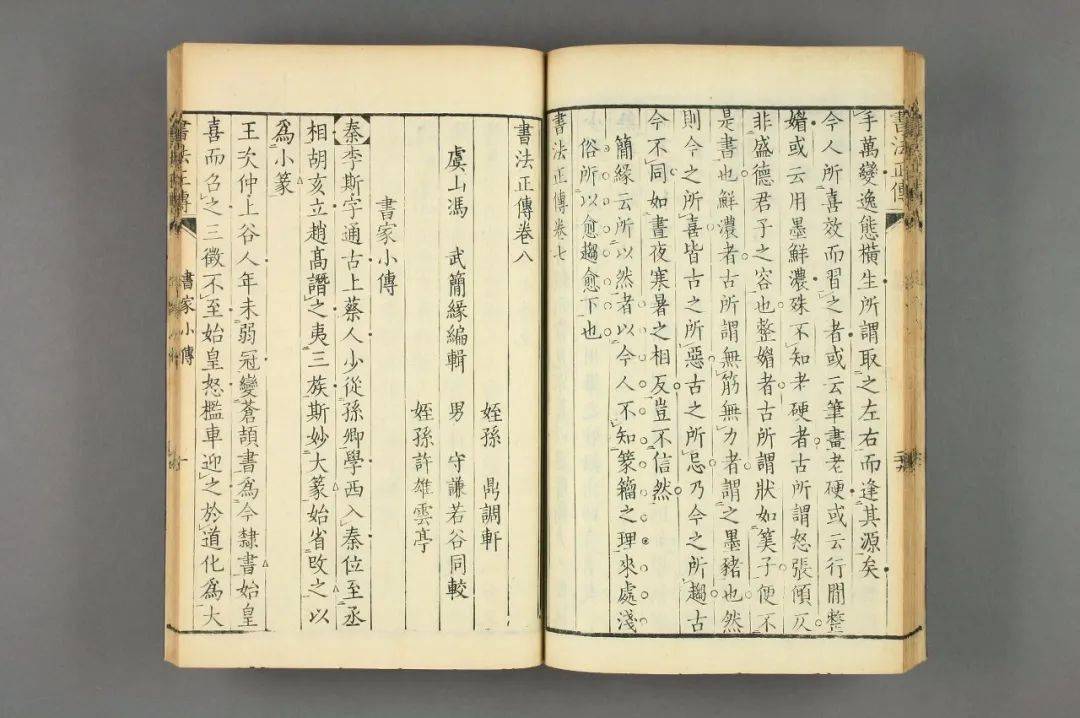 書法正傳
手萬變逸態橫生所謂取之左右而逢其源矣
今人所喜效而習之者或云筆畫老硬或云行間整
媚或云用墨鮮濃殊不知老硬者古所謂怒張傾仄
非盛德君子之容也整媚者古所謂狀如筭子便不
是書也鮮濃者古所謂無筋無力者謂之墨豬也然
則今之所喜皆古之所惡古之所忌乃今之所趨古
今不同如晝夜寒暑之相反豈不信然
簡緣云所以然者以今人不知篆籀之理來處淺
俗所以愈趨愈下也
書法正傳卷七
書法正傳卷八
姪孫 鼎調軒
虞山馮 武簡緣編輯 男 守謙若谷同較
姪孫許雄雲亭
書家小傳
秦李斯字通古上蔡人少從孫卿學西入秦位至丞
相胡亥立趙高譖之夷三族斯妙大篆始省改之以
爲小篆
王次仲上谷人年未弱冠變蒼頡書爲今隸書始皇
喜而召之三徵不至始皇怒檻車迎之於道化爲大
書法正傳
書家小傳
一